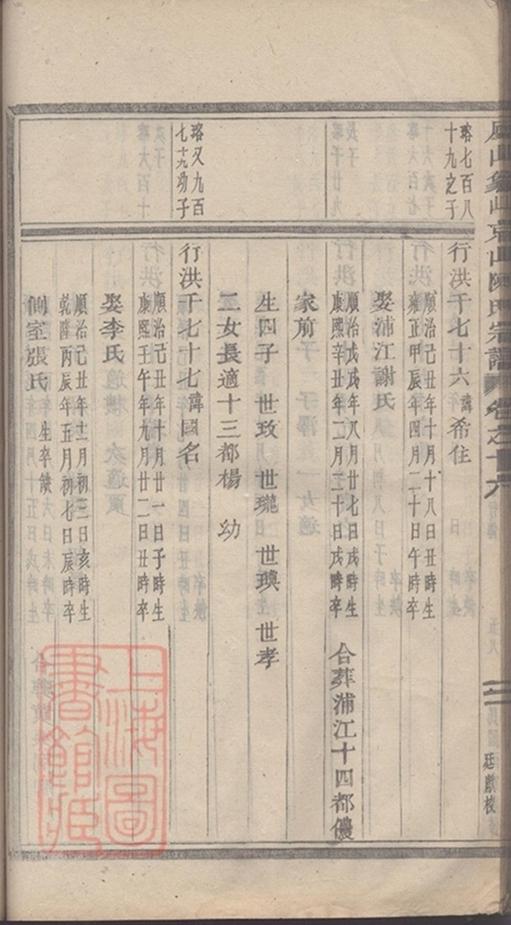 陳氏宗譜 卷之十六
廷獻校
珞七百八
十九之子
行洪千七十六諱希住
順治己丑年十月十八日丑時生
雍正甲辰年四月二十日午時卒
娶浦江謝氏
順治戊戌年八月廿七日戌時生
康熙辛丑年二月三十日戌時卒
合葬浦江十四都儂
家前
生四子 世玫 世瓏 世瑛 世孝
二女長適十三都楊 幼
珞又九百
七十九幼子
行洪千七十七諱國名
順治己丑年十月廿一日子時生
康熙壬午年九月廿二日丑時卒
娶李氏
順治己丑年十二月初三日亥時生
乾隆丙辰年五月初七日辰時卒
側室張氏 生卒缺
上海圖
書館藏